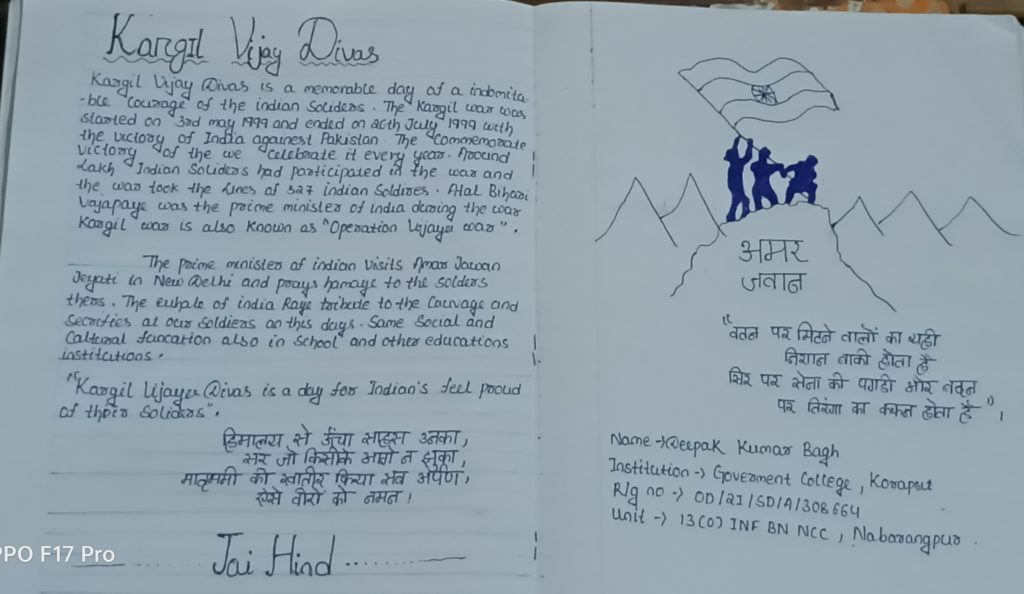 Kargil Vijay Divas
Kargil Vijay Divas is a memorable day of a indomita
-ble courage of the indian Soliders. The Kargil war was
started on 3rd may 1999 and ended on 26th July 1999 with
the victory of India againest Pakistan. The Commemorate
victory of the we celebrate it every year. Around
Lakh Indian Soliders had participated in the war and
the war took the Lines of 527 indian Soldires. Atal Bihari
Vajapaye was the prime minister of india during the war
Kargil war is also known as "Operation Vijayer war".
The prime minister of indian visits Amar Jawan
Jeyati in New Delhi and prays homage to the solders
thers. The euhale of india Raye tribute to the Courage and
Secrifies at our Soldiers on this days. Same Social and
Caltural fancation also in School and other educations
institutions.
"Kargil Vijayer Divas is a day for Indian's feel proud
of their Soliders".
हिमालय से ऊँचा साहस उनका,
सर जो किसीके आगे न झुका,
मातृममी की खातीर किया सब अर्पण,
ऐसे वीरों को नमन !
Jai Hind
अमर
जवान
"वतन पर मिटने वालों का यही
निशान बाकी होता है
सिर पर सेना की पगडी और बदन
पर तिरंगा का कफन होता है"।
Name → Deepak Kumar Bagh
Institution → Goverment College, Koraput
R/g no → OD/21/SD/A/308664
Unit → 13(O) INF BN NCC, Nabarangpur.
PPO F17 Pro